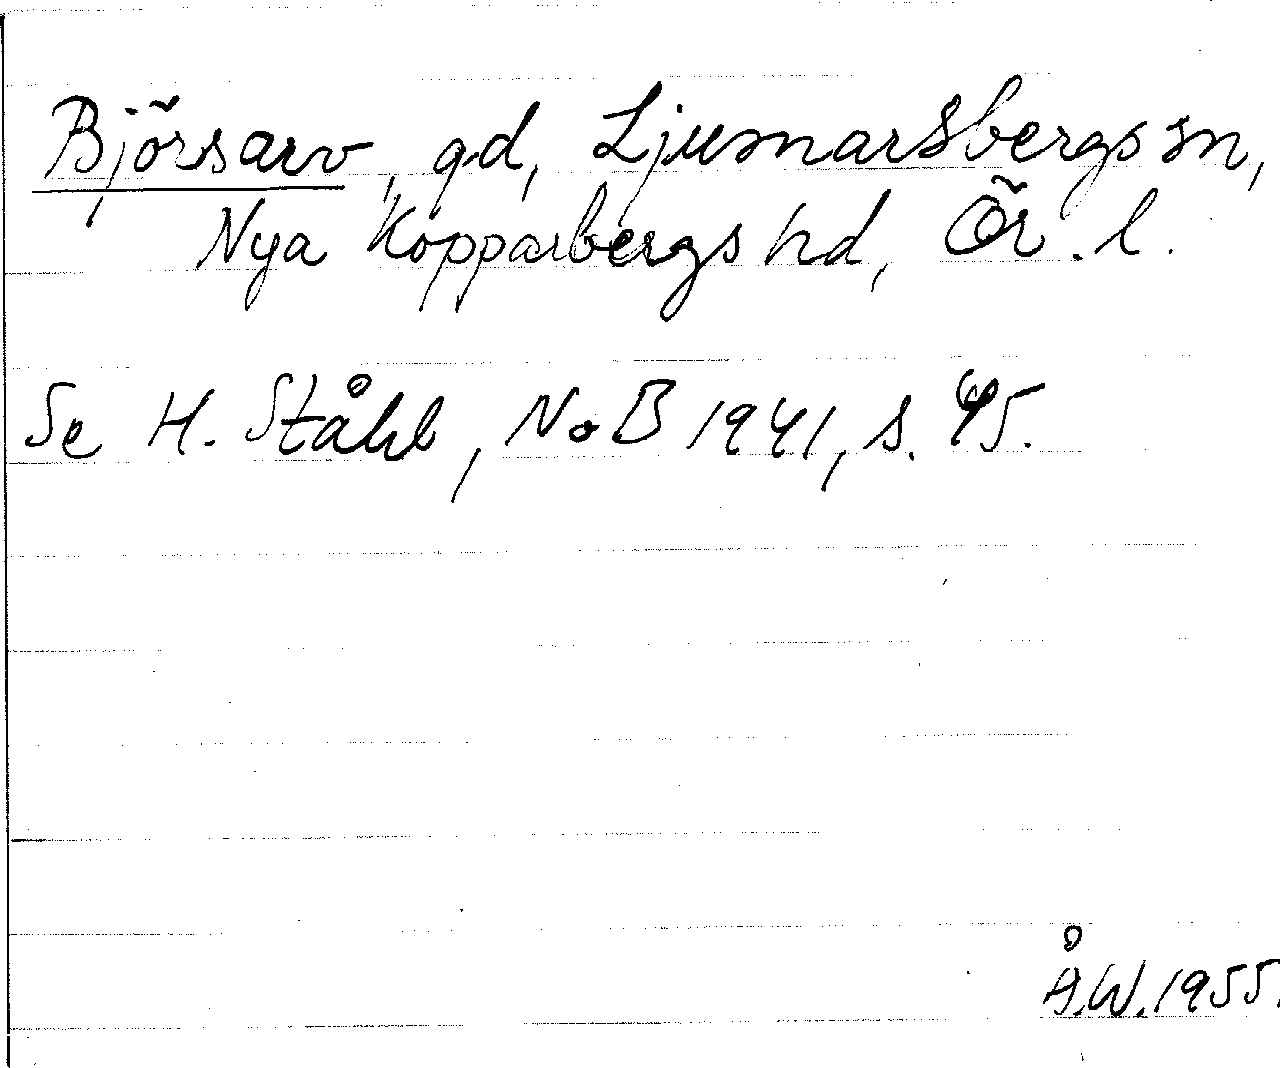 Björsarv, gd, Ljusnarsbergs sn,
Nya Kopparbergs hd, Ör. l.
Se H. Ståhl, NoB 1941, s. 45.
Å.W. 1955.